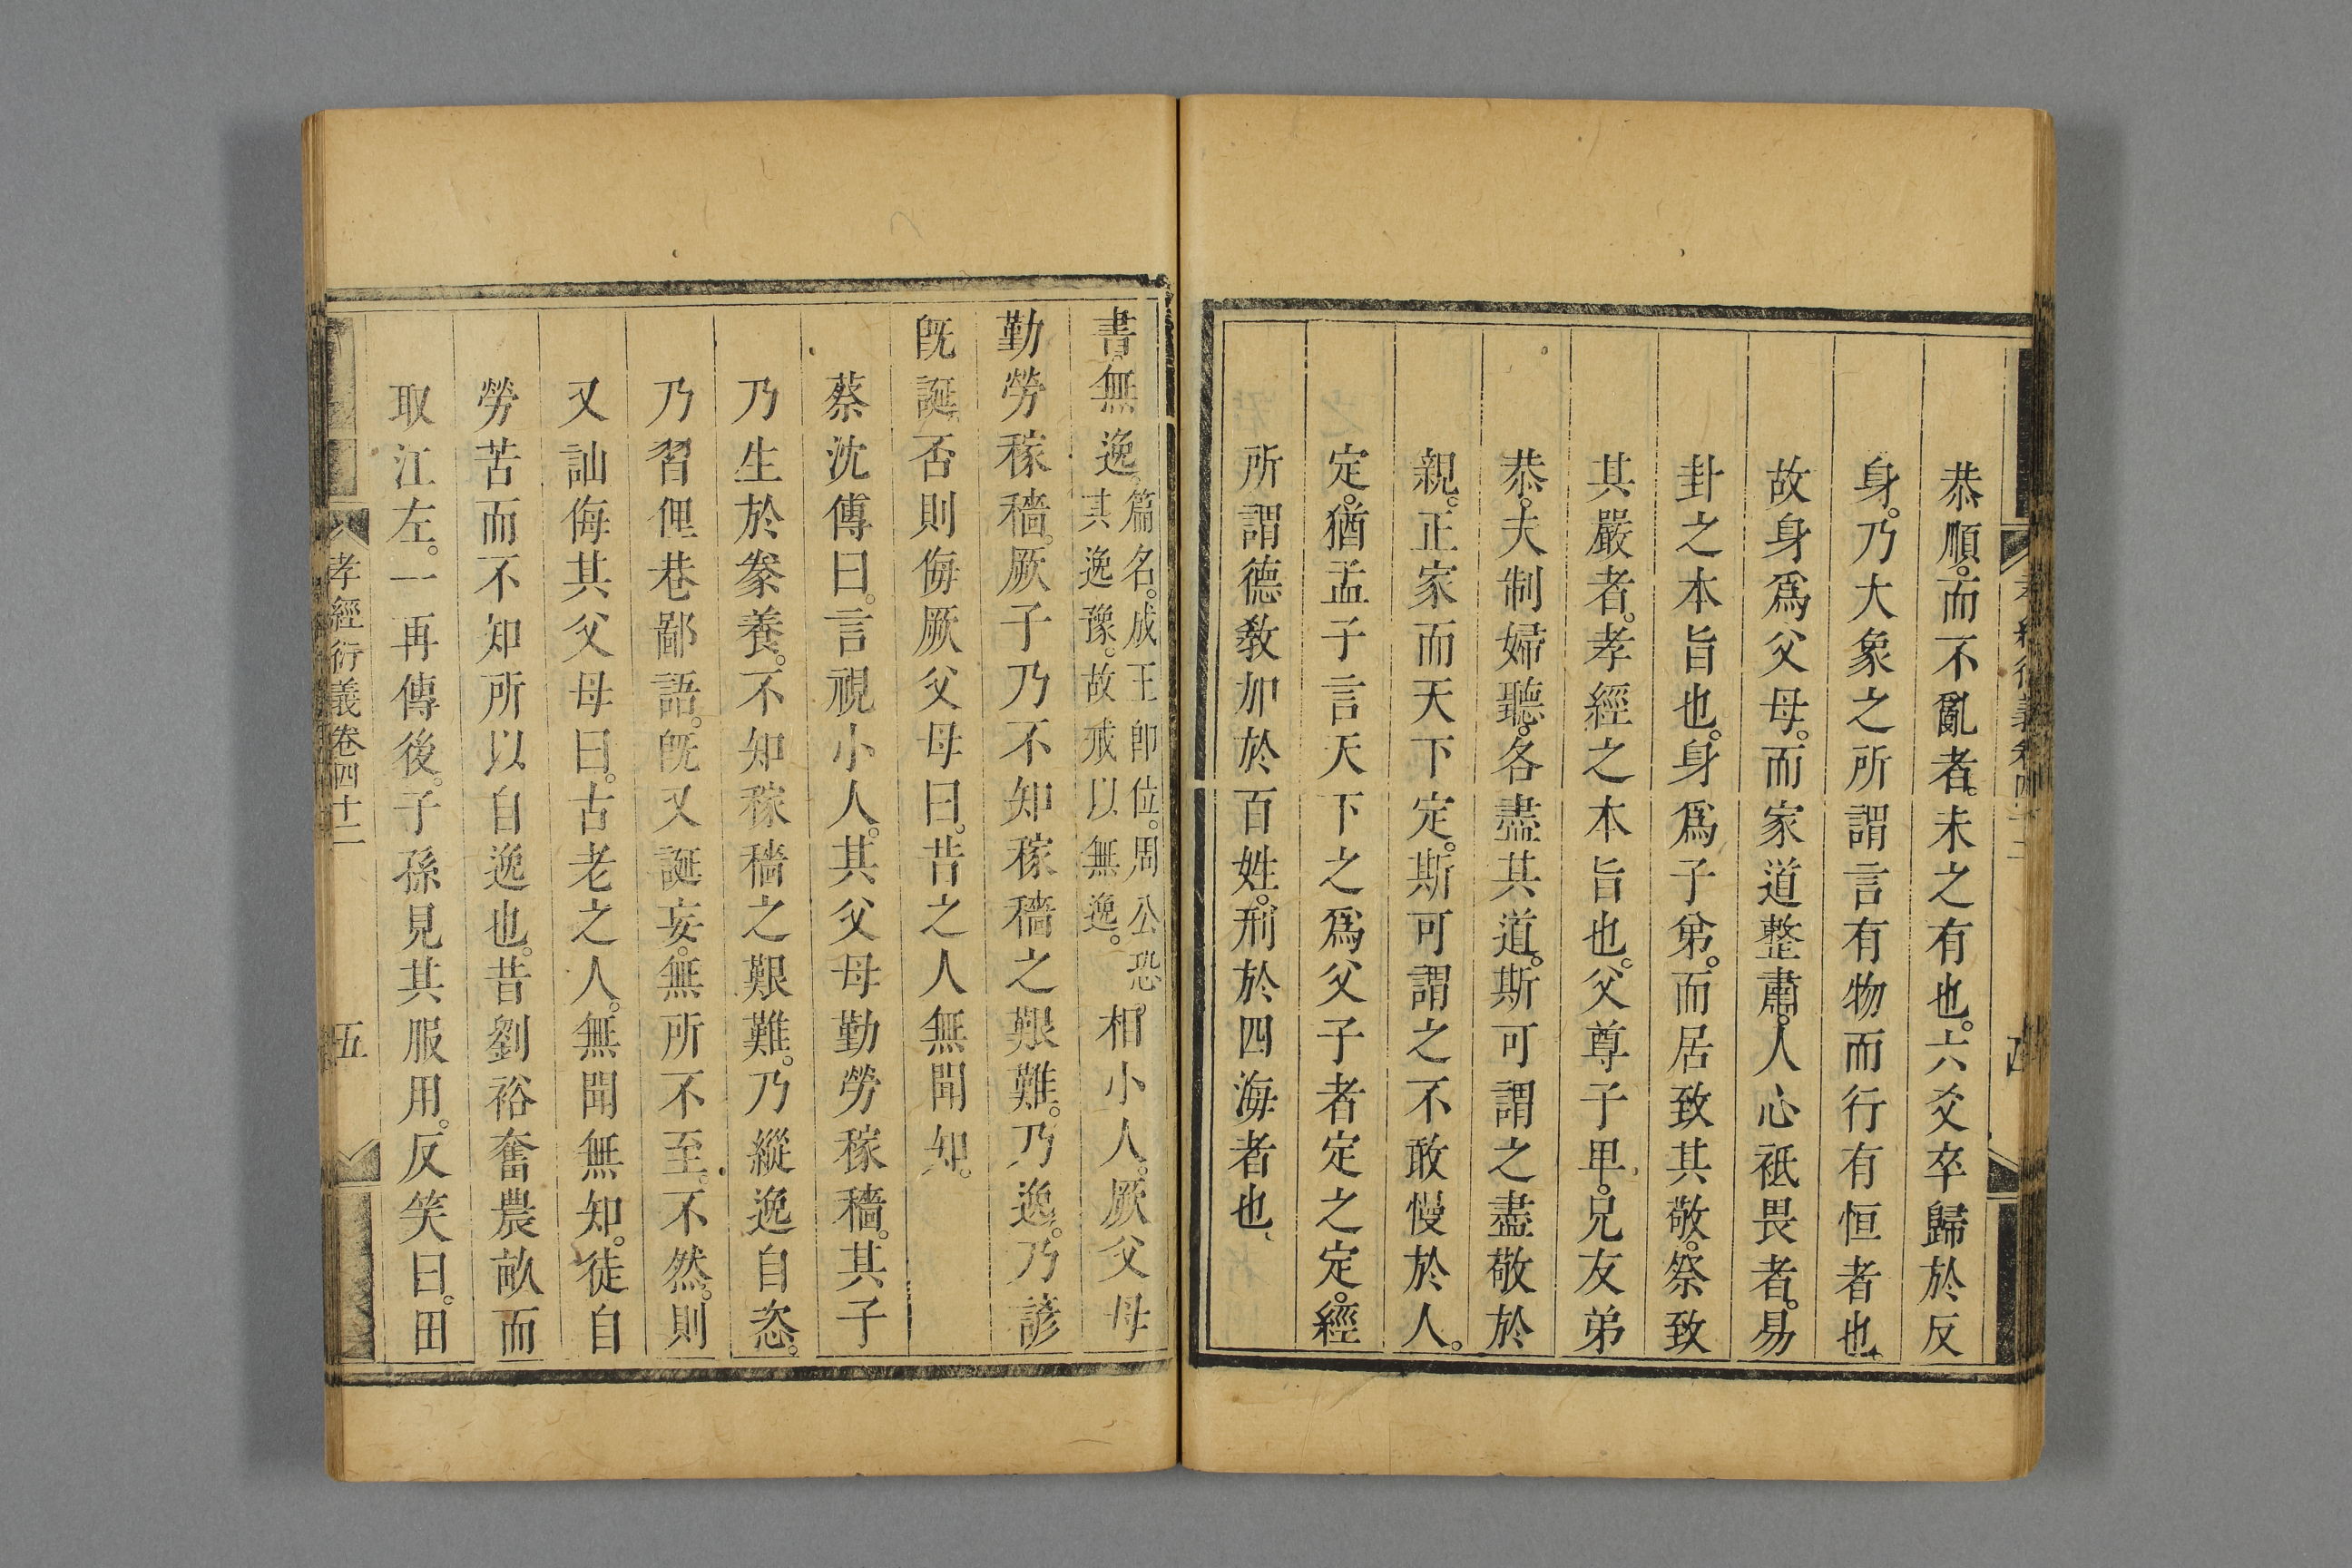 恭順。而不亂者。未之有也。六爻卒歸於反
身。乃大象之所謂言有物而行有恒者也。
故身爲父母。而家道整肅。人心祗畏者。易
卦之本旨也。身爲子弟。而居致其敬。祭致
其嚴者。孝經之本旨也。父尊子卑。兄友弟
恭。夫制婦聽。各盡其道。斯可謂之盡敬於
親。正家而天下定。斯可謂之不敢慢於人。
定。猶孟子言天下之爲父子者定之定。經
所謂德敎加於百姓。刑於四海者也、
書無逸。篇名。成王卽位。周公恐其逸豫。故戒以無逸。相小人。厥父母
勤勞稼穡。厥子乃不知稼穡之艱難。乃逸。乃諺
旣誕。否則侮厥父母曰。昔之人無聞知。
蔡沈傳曰。言視小人。其父母勤勞稼穡。其子
乃生於豢養。不知稼穡之艱難。乃縱逸自恣。
乃習俚巷鄙語。旣又誕妄。無所不至。不然。則
又訕侮其父母曰。古老之人。無聞無知。徒自
勞苦而不知所以自逸也。昔劉裕奮農畝而
取江左。一再傳後。子孫見其服用。反笑曰。田
孝經衍義卷四十二
五